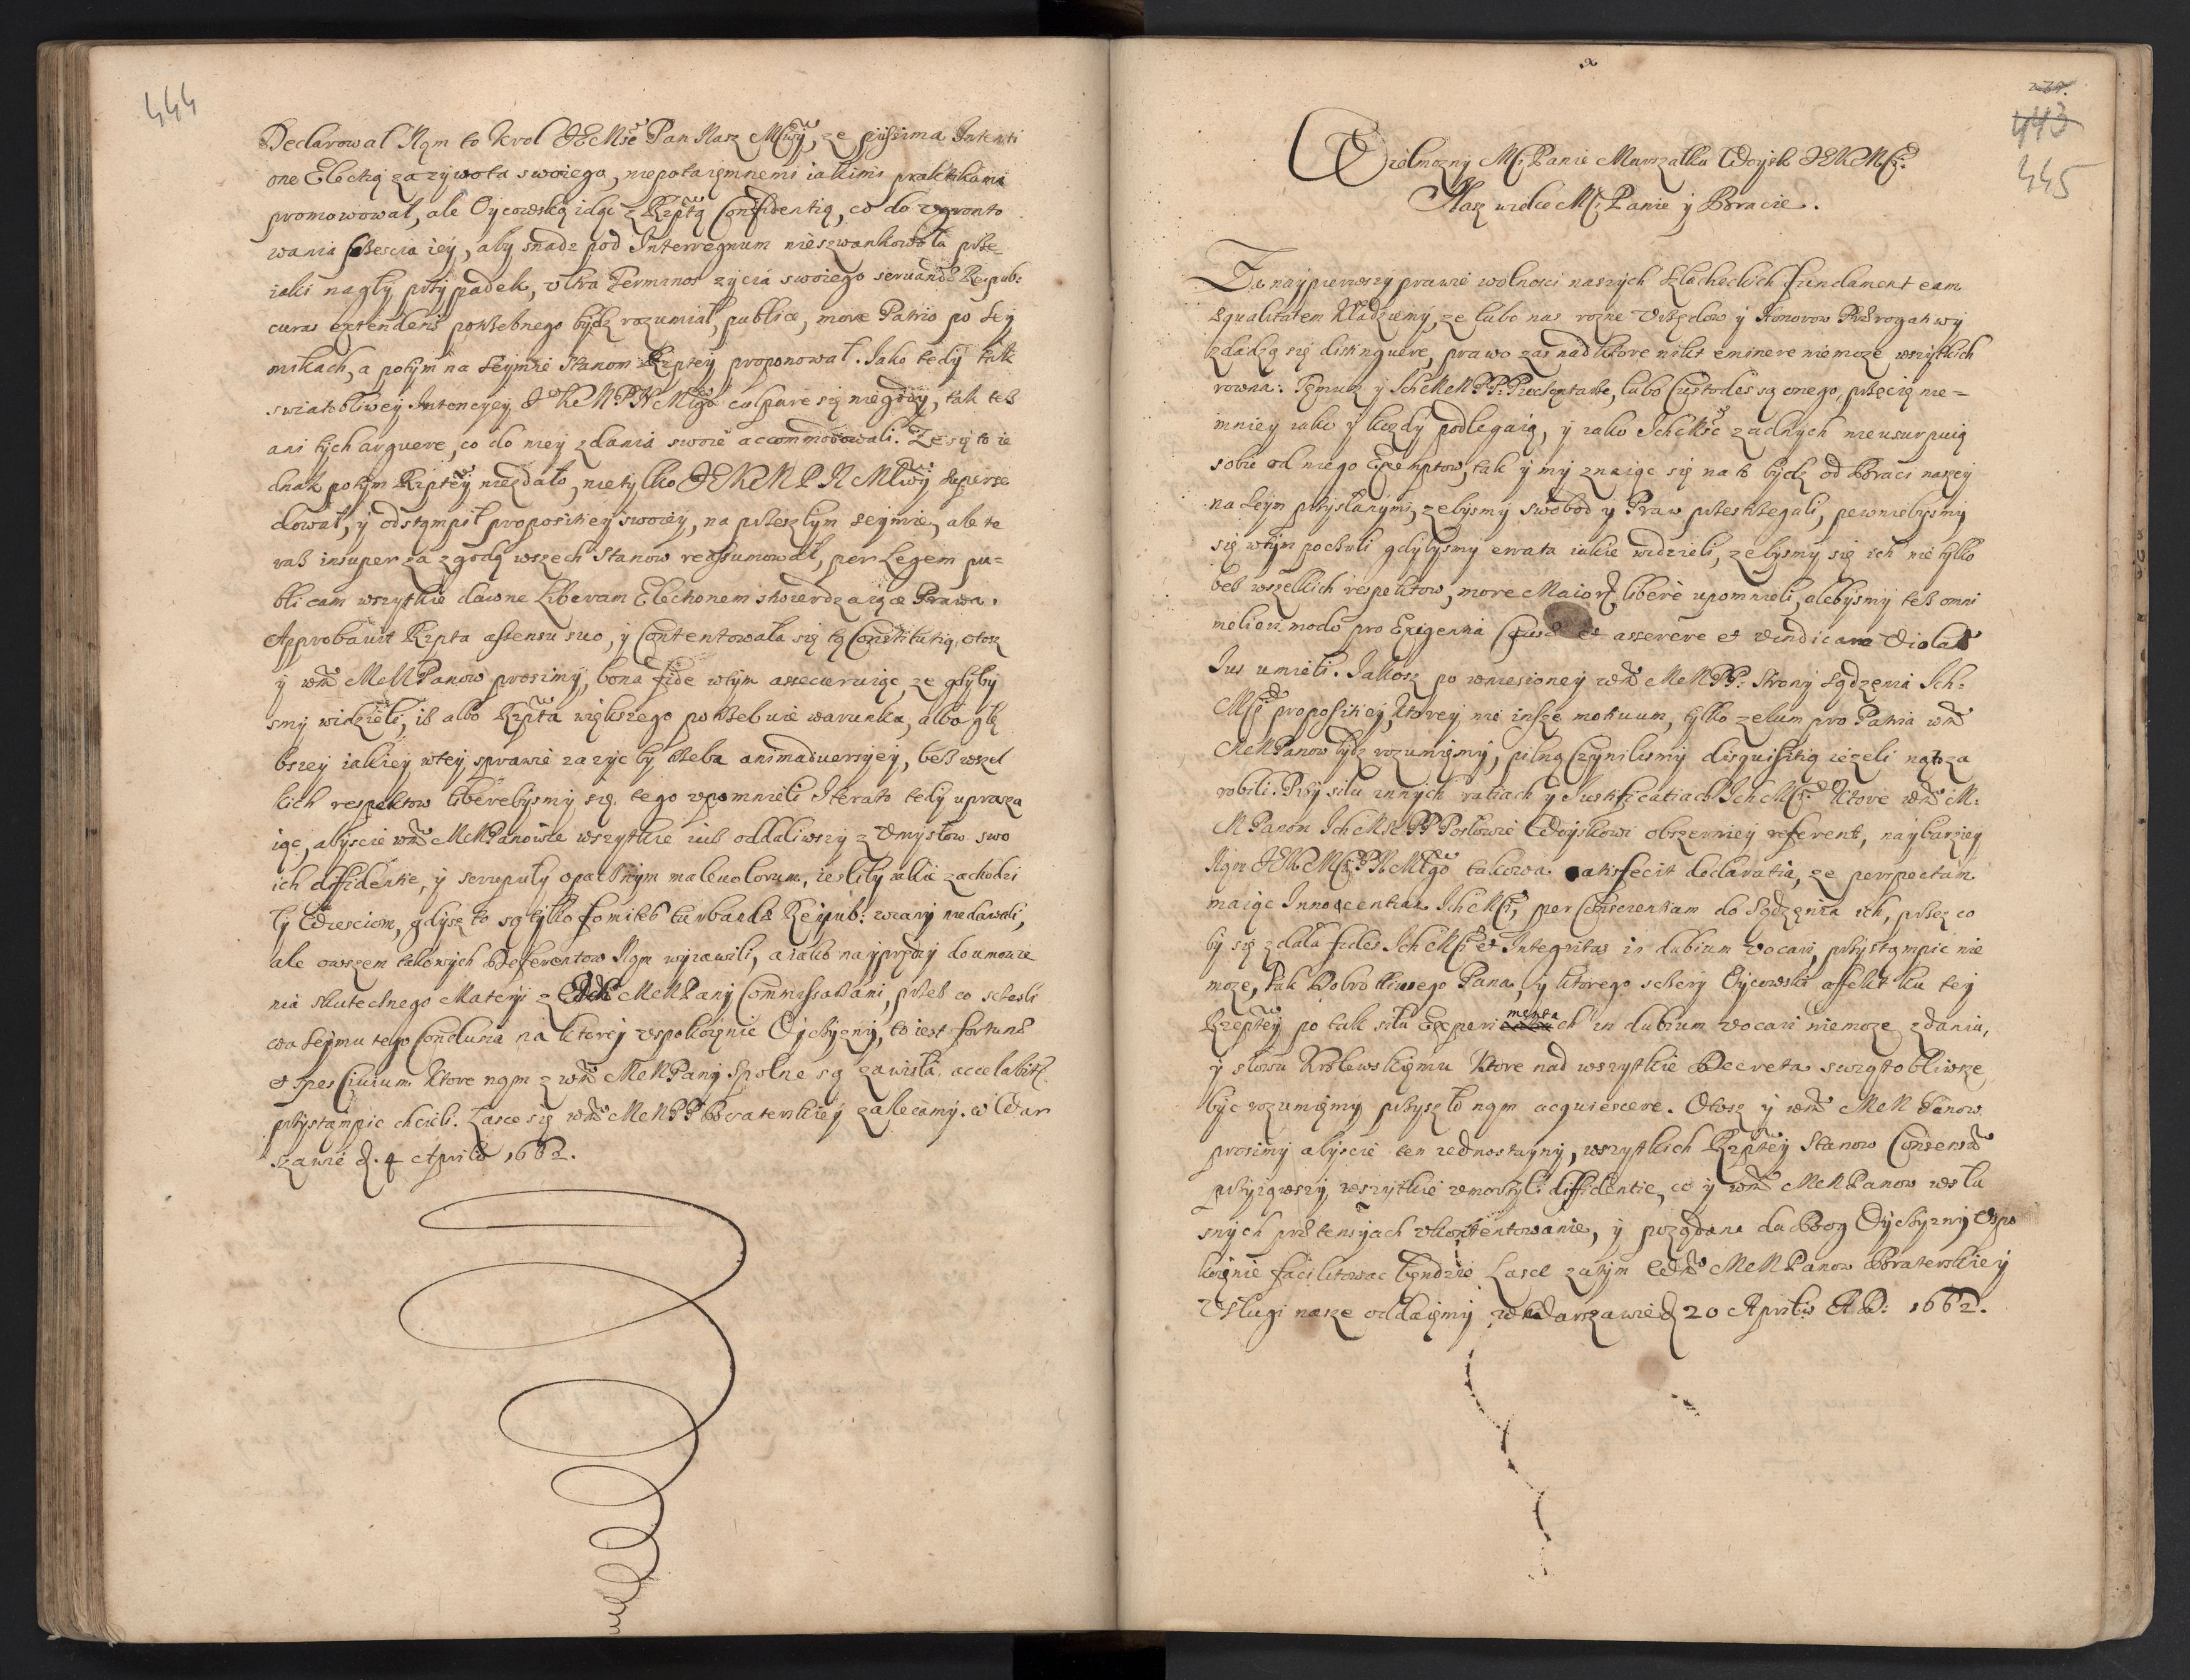 444
Declarował Nąm to Krol JEcMsc Pan Nasz Mlwy, ze pyssima Intenti
one Electią za zywota swoiego, niepotaięmnemi iakimi praktikami
promowował, ale Oycowską idąc z Rzptą Confidentią, co do vgronto
wania sczescia iey, aby snadz pod Interregnum nieszwankowała prze
iaki nagły przypadek, vltra Terminos zycia swoiego servandæ Reipub:
curas extendens potrzebnego bydz rozumiał, publice, more Patrio po Sey
mikach, a potym na Seymie Stanom Rzptey proponował. Iako tedy tak
swiatobliwey Intencyey JKMPNMłgo culpare się niegodzy, tak tesz
ani tych arguere, co do niey zdania swoie accommodowali. Ze się to ie
dnak potym Rzptey niezdało, nie tylko JEKMPNMłwy superse
dował, y odstąmpił propositiey swoiey, na przeszłym seymie, ale te
rasz insuper za zgodą wszech Stanow reassumował, per Legem pu=
blicam wszytkie dawne Liberam Electionem stwierdzaiące Prawa.
Approbavit Rzpta assensu suo, y Contentowała się tą Constitutią, otosz
y wm MMPanow prosimy, bona fide wtym assecuruiąc, ze gdyby
smy widzieli, isz albo Rzpta większego potrzebuie warunku, albo głę
bszey iakiey wtey sprawie zazyc by trzeba animadversyey, besz wszel
kich respektow liberebysmy się tego vpomnieli Iterato tedy uprasza
iąc, abyscie wm MMPanowie wszytkie iusz oddaliwszy z Vmysłow swo
ich diffidentie, y scrupuły opacznym malevolorum, iesliby iakie zachodzi
ły Wresciom, gdysz to są tylko fomites turbandæ Reipub: wiary niedawali,
ale owszem takowych Deferentow Nąm wyiawili, a iako nayprędzy do umowie
nia skutecznego Materyi z MMPany Commissarzami, przesz co sczesli
wa Seymu tego Conclusia na ktorey vspokoięnie Oyczyzny, to iest fortunæ
et spes Civium Ktore nąm z wm MMPany Spolne są zawisła, accelabitr
przystąmpic chcieli. Lasce się wm MMPP Braterskiey zalecamy. w War
szawie d. 4 Aprilis 1662.
443
445
Wielmozny Mci Panie Marszałku Woysk JEKMci
Nasz wielce Mci Panie y Bracie.
Ta naypierwszy prawie wolnosci naszych Szlacheckich fundament eam
æqualitatem kładziemy, ze lubo nas rozne Vrzędow y Honorow Prærogatiwy
zdadzą się distinguere, prawo zas nad ktore nikt eminere niemoze wszytkich
rowna: Tęmusz y IchMMPP: Præsentarze, lubo Custodes są onego, przecię nie=
mniey iako y kazdy podlegaią, y iako Ichmsc zadnych nieusurpuią
sobie od niego Exemptow, tak y my znaiąc się na to bydz od Braci naszey
na Seym przysłanymi, zebysmy swobod y Praw przestrzegali, pewniebysmy
się wtym poczuli gdybysmy errata iakie widzieli, zebysmy się ich nie tylko
besz wszelkich respektow, more Maiorum, liberè upomnieli, alebysmy tesz omni
meliori modo pro Exigentia asserere et vindicare Violatum
Ius umieli. Iakosz po wniesioney wm MMPP: Strony Sądzęnia Ich=
Msci propositiey, ktorey nie insze motivum, tylko zelum pro Patria wm
MMPanow bydz rozumięmy, pilną Czynilismy disquisitią iezeli nąto za
robili. Przy siłu innych ratiach y Iustificatiach IchMci: Ktore wm M:
MPanom IchMscPP Posłowie Woyskowi obszerniey referent, naybarziey
Nąm JEKMciPNMłgo takowa satisfecit declaratia, ze perspectam
maiąc Innocentiam IchMci, per Conscientiam do Sądzęnia ich, przez co
by się zdała fides IchMci et Integritas in dubium vocari, przystąmpic nie
moze, Tak Dobrotliwego Pana, y ktorego sczery Oycowski affekt ku tey
Rzeptey po tak siłu Experimentach in dubium vocari niemoze zdaniu,
y słowu Krolewskięmu Ktore nad wszytkie Decreta swiątobliwsze
byc rozumięmy, przyszło nąm acquiescere. Otosz y wm MM Panow
prosimy abyscie ten iednostayny, wszytkich Rzptey Stanow Consensum
przyiąwszy, wszytkie vmorzyli diffidentie, co y wm MMPanow wsłu
snych prætensyach vkontentowanie, y poządane da Boog Oyczyzny Vspo
koięnie facilitowac będzie Lasce zatym Wm MMPanow Braterskiey
Vsługi nasze oddaięmy w Warszawie d 20 Aprilis AD: 1662.